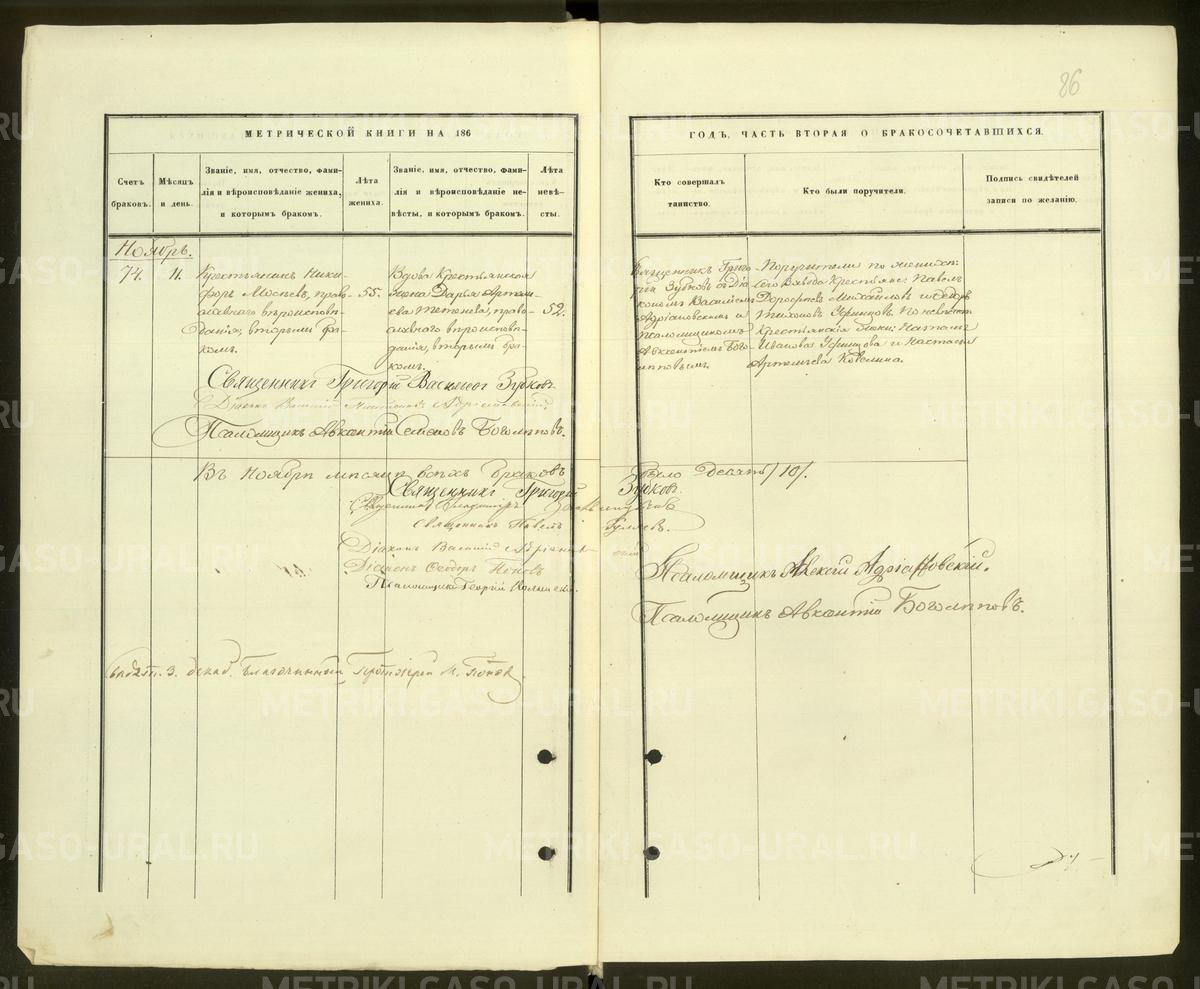 86
МЕТРИЧЕСКОЙ КНИГИ НА 186
ГОДЪ, ЧАСТЬ ВТОРАЯ О БРАКОСОЧЕТАВШИХСЯ.
Счетъ браковъ.
Мѣсяцъ и день.
Званіе, имя, отчество, фами-
лія и вѣроисповѣданіе жениха,
и которымъ бракомъ.
Лѣта жениха.
Званіе, имя, отчество, фами-
лія и вѣроисповѣданіе не-
вѣсты, и которымъ бракомъ.
Лѣта невѣ-
сты.
Кто совершалъ
таинство.
Кто были поручители.
Подпись свидѣтелей
записи по желанію.
Ноябрь.
74. 11.
Крестьянинъ Ники-
форъ право-
славнаго вѣроисповѣ-
данія, вторымъ бра-
комъ.
55.
Вдова Крестьянская
жена Дарья Артемь-
ева право-
славнаго вѣроисповѣ-
данія, вторымъ бра-
комъ.
52.
Священникъ Григо-
рій Зубковъ съ Діа-
кономъ Василіемъ
Адріановскимъ и
Псаломщикомъ
Авксентіемъ Бого-
лѣповымъ.
Поручители по женихѣ:
Крестьяне: Павелъ
Дорофеевъ Михайловъ и Ѳедоръ
Тихоновъ По невѣстѣ:
Крестьянскія жены:
Иванова и Настасья
Артемьева
Священникъ Григорій Васильевъ Зубковъ
Діаконъ Василій
Псаломщикъ Авксентій Семеновъ Боголѣповъ.
Въ Ноябрѣ мѣсяцѣ всѣхъ браковъ было десять /10/.
Священникъ Григорій Зубковъ.
Священникъ Владиміръ
Священникъ Павелъ
Діаконъ Василій Адріановскій
Діаконъ Ѳеодоръ Поповъ
Псаломщикъ Георгій
Псаломщикъ Алексій Адріановскій.
Псаломщикъ Авксентій Боголѣповъ.
3. декаб. Благочинный Протоіерей М. Поповъ
METRIKI.GASO-URAL.RU